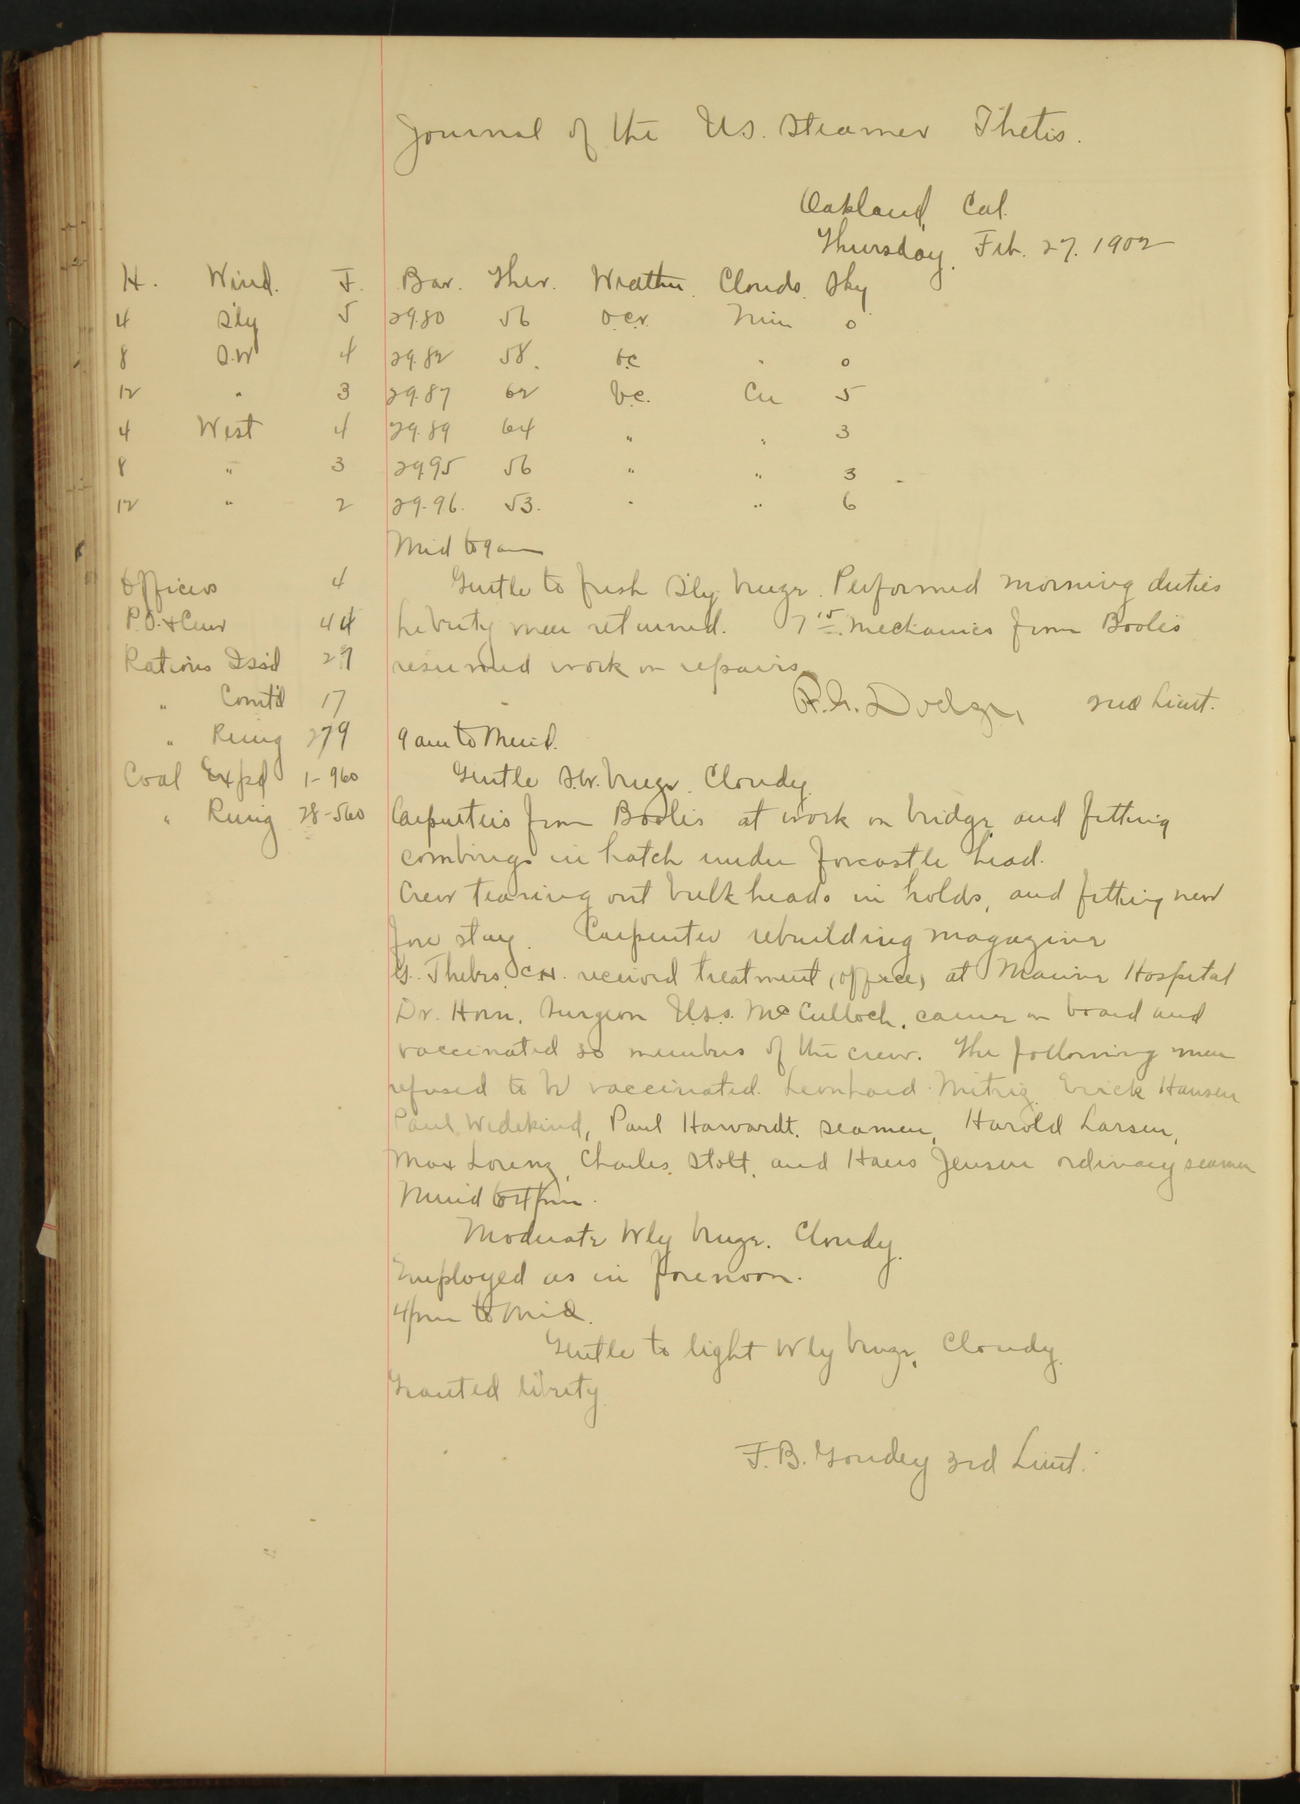 Journal of the U.S. Steamer Thetis.
Oakland, Cal.
Thursday, Feb. 27. 1902
H. Wind. F. Bar. Ther. Weather. Clouds. Sky
4 Sly 5 29.80 56 o.c.r. Nim 0
8 S.W 4 29.82 58. o.c " 0
12 " 3 29.87 62 b.c. Cu 5
4 West 4 29.89 64 " " 3
8 " 3 29.95 56 " " 3
12 " 2 29.96. 53. " " 6
Mid to 9 am
Officers 4 Gentle to fresh Sly breeze. Performed morning duties
P.O. & Crew 44 Liberty men returned. 7 15 mechanics from Booles
Rations Issd 27 resumed work on repairs
" Comt'd 17 2nd Lieut.
" Rmng 279 9 am to Merid.
Coal Expd 1-960 Gentle S.W. breeze. Cloudy.
" Rmng 28-560 Carpenters from Booles at work on bridge and fitting
combings in hatch under forecastle head.
Crew tearing out bulkheads in holds, and fitting new
fore stay. Carpenter rebuilding magazine
G. Thebes, received treatment (office) at Marine Hospital
Dr. Horn, Surgeon U.S.S. McCulloch, came on board and
vaccinated members of the crew. The following men
refused to be vaccinated. Leonhard Erick Hansen
Paul Widekind, Paul Hawardt, seamen, Harold Larsen,
Max Lorenz, Charles Stolt, and Hans Jensen ordinary seamen
Merid to 4 pm.
Moderate Wly breeze. Cloudy.
Employed as in forenoon.
4 pm to Mid.
Gentle to light Wly breeze, Cloudy.
Granted liberty.
F.B. 3rd Lieut.